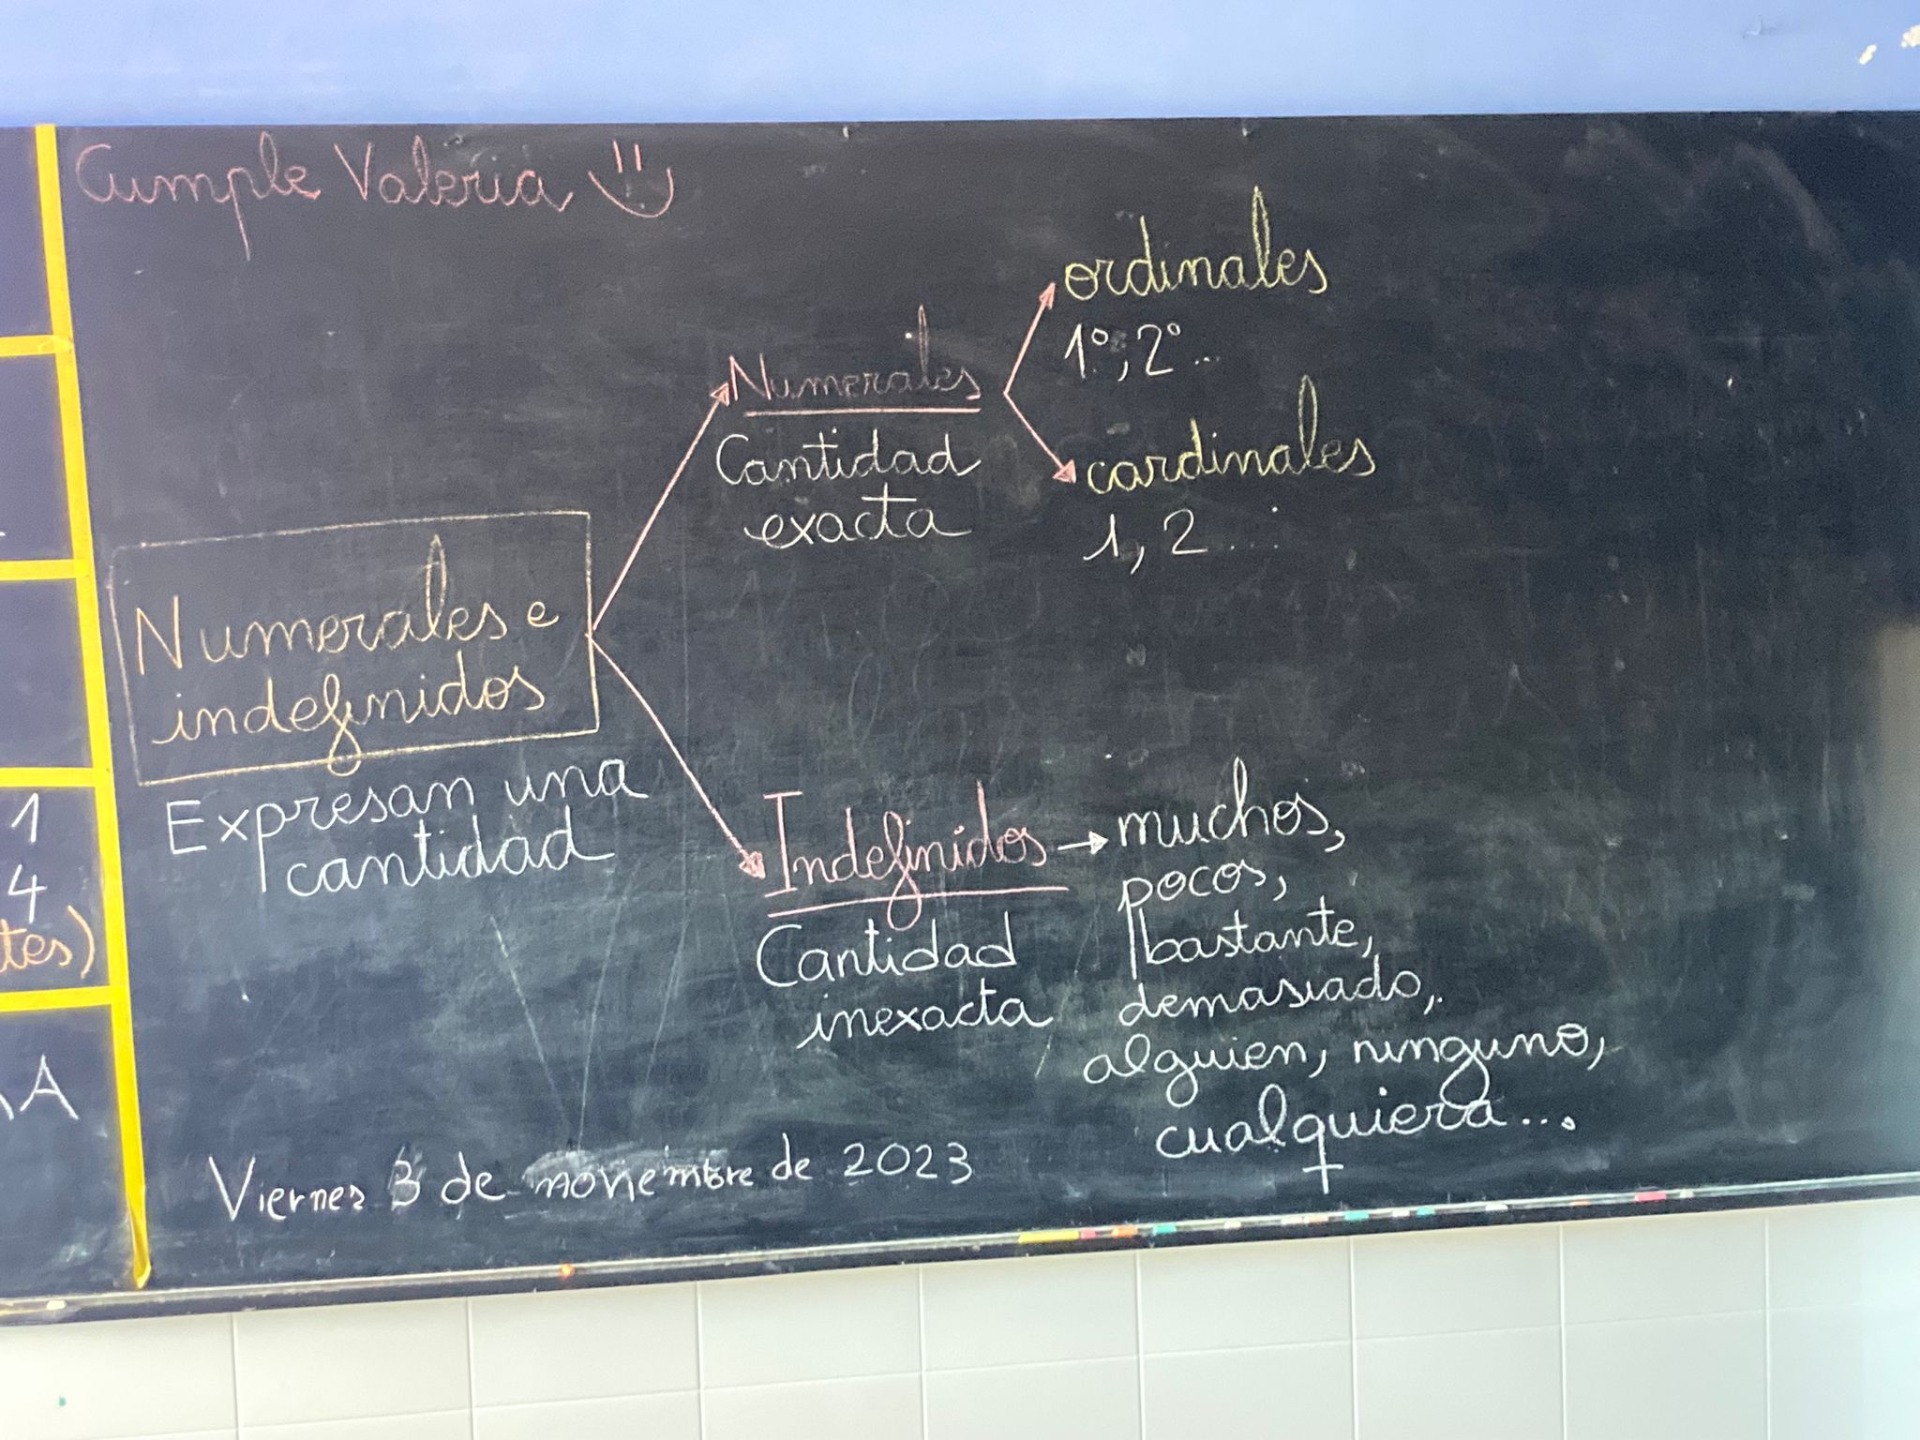 Cumple Valeria
ordinales
1º, 2º...
Numerales
Cantidad
exacta
cardinales
1, 2...
Numerales e
indefinidos
Expresan una
cantidad
Indefinidos
Cantidad
inexacta
muchos,
pocos,
bastante,
demasiado,
alguien, ninguno,
cualquiera...
1
4
tes)
A
Viernes 3 de noviembre de 2023